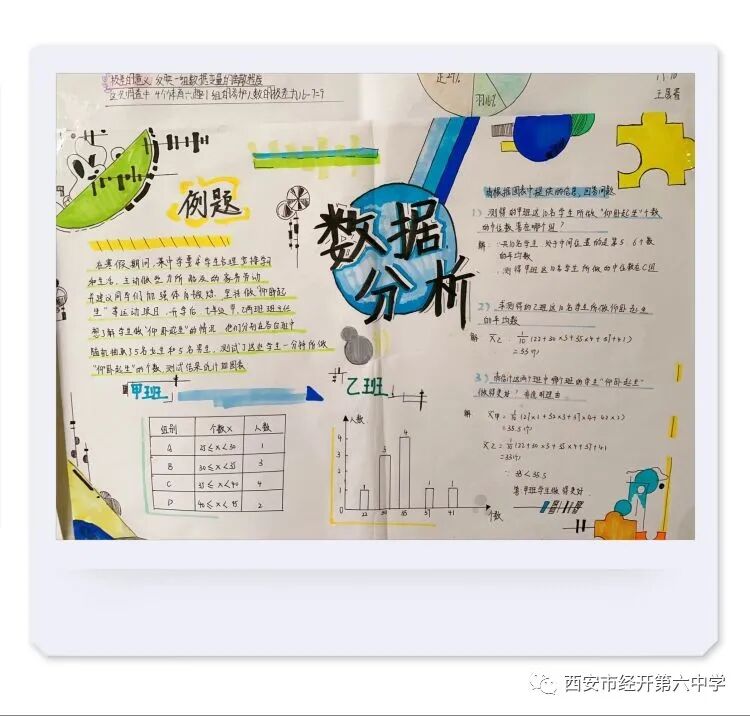 极差的意义 反映一组数据变量的离散程度
正29%
羽16%
例题
数据
分析
在寒假期间,某中学要求学生合理安排学习
和生活,主动做些力所能及的家务劳动
并建议同学们加强体育锻炼,坚持做“仰卧起
坐”等运动项目.开学后,七年级甲,乙两班班主任
想了解学生做“仰卧起坐”的情况 他们分别在各自班中
随机抽取了5名女生和5名男生,测试了这些学生一分钟所做
“仰卧起坐”的个数,测试结果统计如图表
甲班
组别 个数x 人数
A 25≤x<30 1
B 30≤x<35 3
C 35≤x<40 4
D 40≤x<45 2
乙班
人数
4
3
2
1
0
22 30 35 37 41
个数
请根据图表中提供的信息,回答问题
1) 测得的甲班这10名学生所做“仰卧起坐”个数
的中位数落在哪个组?
解: ∵共10名学生 处于中间位置的是第5、6个数
的平均数
∴测得甲班这10名学生所做的中位数在C组
2) 求测得的乙班这10名学生所做仰卧起坐
的平均数
解 x̄乙=1/10(22+30×3+35×4+37+41)
=33(个)
3) 请估计这两个班中哪个班的学生“仰卧起坐”
做得更好?并说明理由
解
=35.5个
x̄乙=1/10(22+30×3+35×4+37+41
=33(个)
∵33<35.5
答:甲班学生做得更好.
西安市经开第六中学